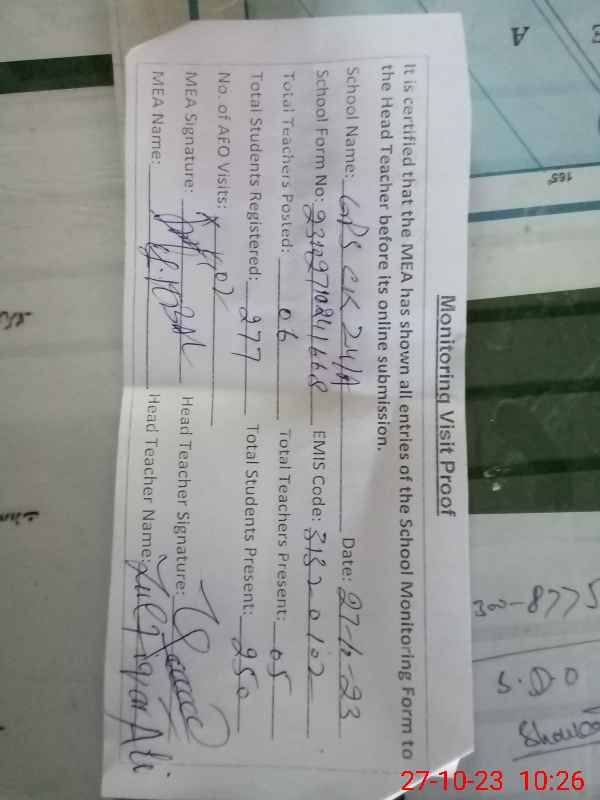 Monitoring Visit Proof
It is certified that the MEA has shown all entries of the School Monitoring Form to
the Head Teacher before its online submission.
School Name: GPS CK 24/A Date: 27-10-23
School Form No: EMIS Code:
Total Teachers Posted: 06 Total Teachers Present: 05
Total Students Registered: 277 Total Students Present: 250
No. of AEO Visits: 02
MEA Signature: Head Teacher Signature:
MEA Name: Head Teacher Name: Zulfiqar Ali
A
165
300-8775
S.D.O
27-10-23 10:26